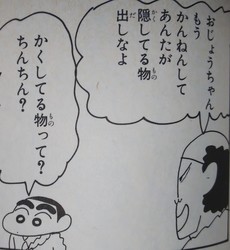 おじょうちゃん
もう
かんねんして
あんたが
隠してる物
出しなよ
かくしてる物って?
ちんちん?